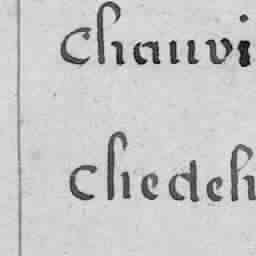 Chauvi
Chedeh